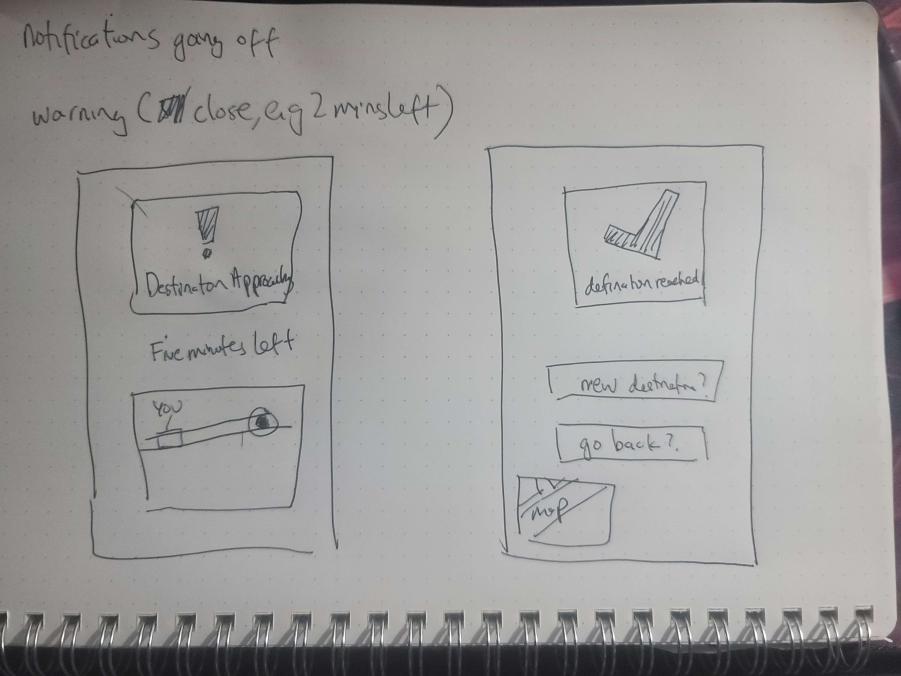 notifications going off
warning ( close, e.g 2 mins left)
! Destination Approaching
Five minutes left
YOU
destination reached
new destination?
go back?
map